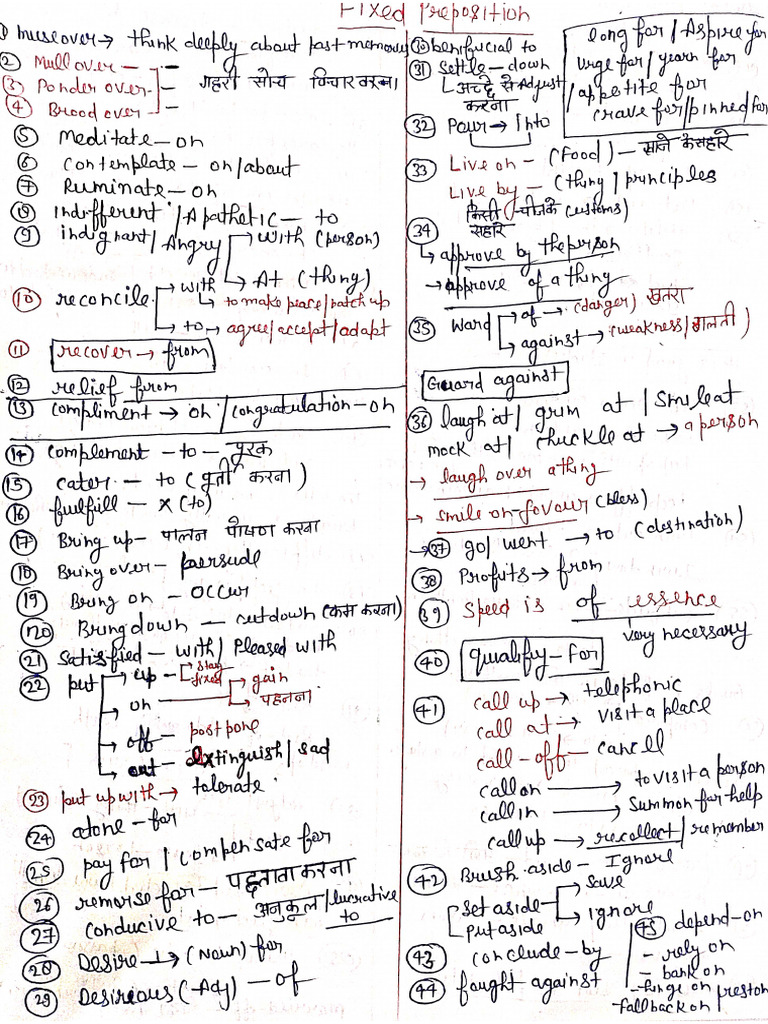 Fixed Preposition
① museover → think deeply about past memory
② Mull over —
③ Ponder over — गहरी सोच विचार करना
④ Brood over —
⑤ Meditate — on
⑥ Contemplate — on/about
⑦ Ruminate — on
⑧ Indifferent / Apathetic — to
⑨ indignant / Angry → with (person)
→ At (thing)
⑩ reconcile → with
↳ to make peace/patch up
→ to → agree/accept/adapt
⑪ recover → from
⑫ relief from
⑬ compliment → on / congratulation — on
⑭ complement — to — पूरक
⑮ cater — to (पूर्ती करना)
⑯ fulfill — × (to)
⑰ Bring up — पालन पोषण करना
⑱ Bring over — persude
⑲ Bring on — occur
⑳ Bring down — cutdown (कम करना)
㉑ Satisfied — with / Pleased with
㉒ put → up → stay
fixed
→ on → gain
→ पहनना
→ off — postpone
→ out — extinguish / sad
㉓ put up with → tolerate
㉔ atone — for
㉕ pay for / compensate for
㉖ remorse for — पछतावा करना
㉗ conducive to — अनुकूल / lucrative
to
㉘ Desire → (Noun) for
㉙ Desireous (Adj) — of
㉚ benifucial to
㉛ Settle — down
↳ अच्छे से Adjust
करना
long for / Aspire for
urge for / yearn for
/ appetite for
crave for / pinned for
㉜ Pour → Into
㉝ Live on — (Food) —
Live by — (thing / principles
customs)
किसी चीज के
सहारे
㉞
↳ approve by the person
→ approve of a thing
㉟ Ward → of → (danger) खतरा
→ against → (weakness / गलती)
Guard against
㊱ laugh at / grim at / Smile at
mock at / chuckle at → a person
→ laugh over a thing
→ smile on — fovour (bless)
→ ㊲ go / went → to (destination)
㊳ Profits → from
㊴ Speed is of essence
very necessary
㊵ qualify — for
㊶ call up → telephonic
call at → visit a place
call — off — cancell
call on → to visit a person
call in → Summon for help
call up → recollect / remember
㊷ Brush aside — Ignore
Set aside → save
Put aside → ignore
㊸ conclude — by
㊹ fought against
㊺ depend — on
— rely on
— bank on
— hinge on
— fall back on